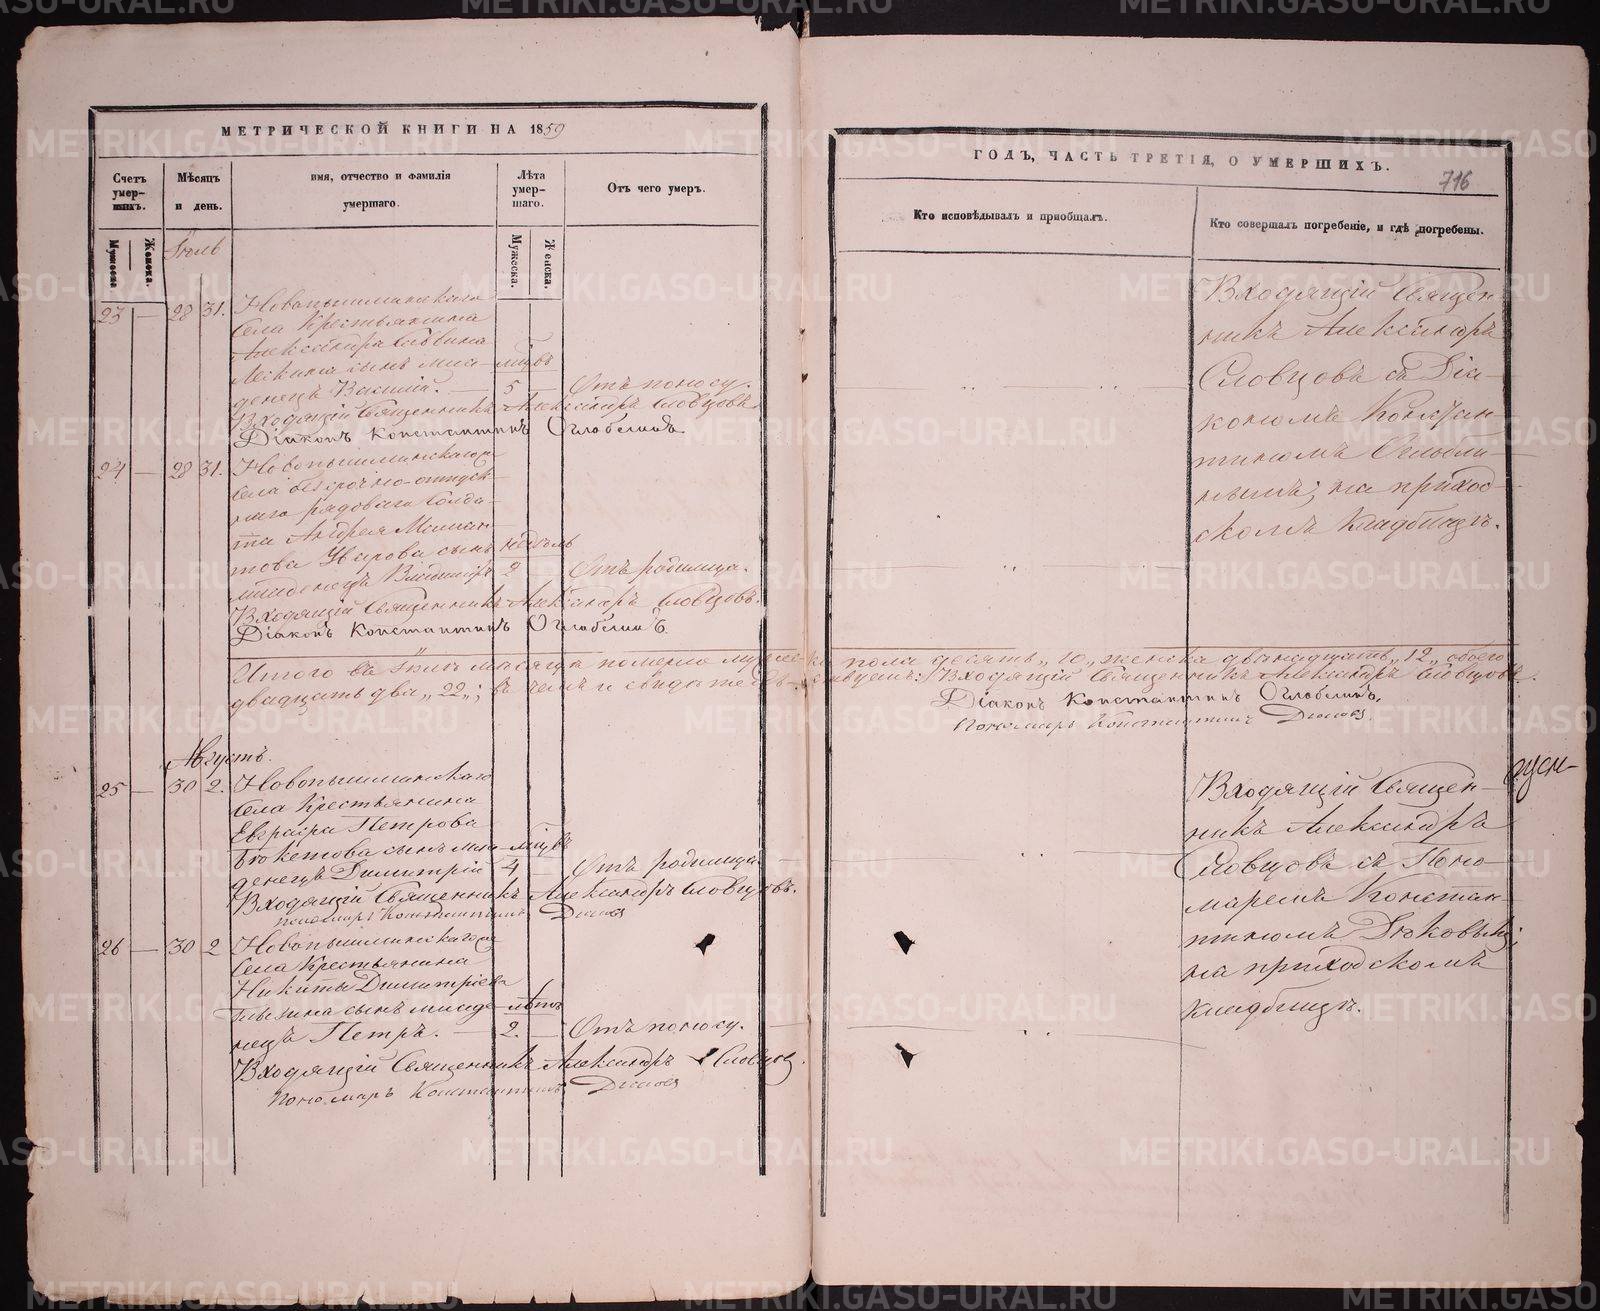 МЕТРИЧЕСКОЙ КНИГИ НА 1859
Счетъ умер-шихъ.
Мѣсяцъ и день.
имя, отчество и фамилія умершаго.
Лѣта умер-шаго.
Отъ чего умеръ.
Мужеска
Женска.
Мужеска.
Женска.
Іюль
23 — 28 31. Новопышминскаго
села Крестьянина
Александра Саввина
сынъ мла- мѣцвъ
денецъ Василій. — 5 — Отъ поносу.
Входящій Священникъ Александръ Словцовъ.
Діаконъ Константинъ Оглоблинъ
24 — 28 31. Новопышминскаго
села безсрочно-отпуск-
наго рядоваго Солда-
та Андрея Маман-
това Уварова сынъ недѣль
младенецъ Владиміръ 2 — Отъ родимца.
Входящій Священникъ Александръ Словцовъ.
Діаконъ Константинъ Оглоблинъ.
Итого въ Іюлѣ мѣсяцѣ померло мужеска пола десять „10„ женска двѣнадцать „12„ обоего
двадцать два „22„; въ чемъ и свидѣтельствуемъ: Входящій Священникъ Александръ Словцовъ.
Діаконъ Константинъ Оглоблинъ,
Пономарь Константинъ Дюковъ.
Августъ.
25 — 30 2. Новопышминскаго
села Крестьянина
Евграфа Петрова
Бекетова сынъ мла- мѣцвъ
денецъ Димитрій 4 — Отъ родимца
Входящій Священникъ Александръ Словцовъ.
Пономарь Константинъ Дюковъ
26 — 30 2 Новопышминскаго
села Крестьянина
Никиты Димитріева
сынъ младе- лѣтъ
нецъ Петръ. — 2. — Отъ поносу.
Входящій Священникъ Александръ Словцовъ.
Пономарь Константинъ Дюковъ
ГОДЪ, ЧАСТЬ ТРЕТІЯ, О УМЕРШИХЪ.
716
Кто исповѣдывалъ и пріобщалъ.
Кто совершалъ погребеніе, и гдѣ погребены.
Входящій Священ-
никъ Александръ
Словцовъ съ Діа-
кономъ Констан-
тиномъ Оглобли-
нымъ; на приход-
скомъ кладбищѣ.
Входящій Священ-
никъ Александръ
Словцовъ съ Поно-
маремъ Констан-
тиномъ Дюковымъ;
на приходскомъ
кладбищѣ.
METRIKI.GASO-URAL.RU